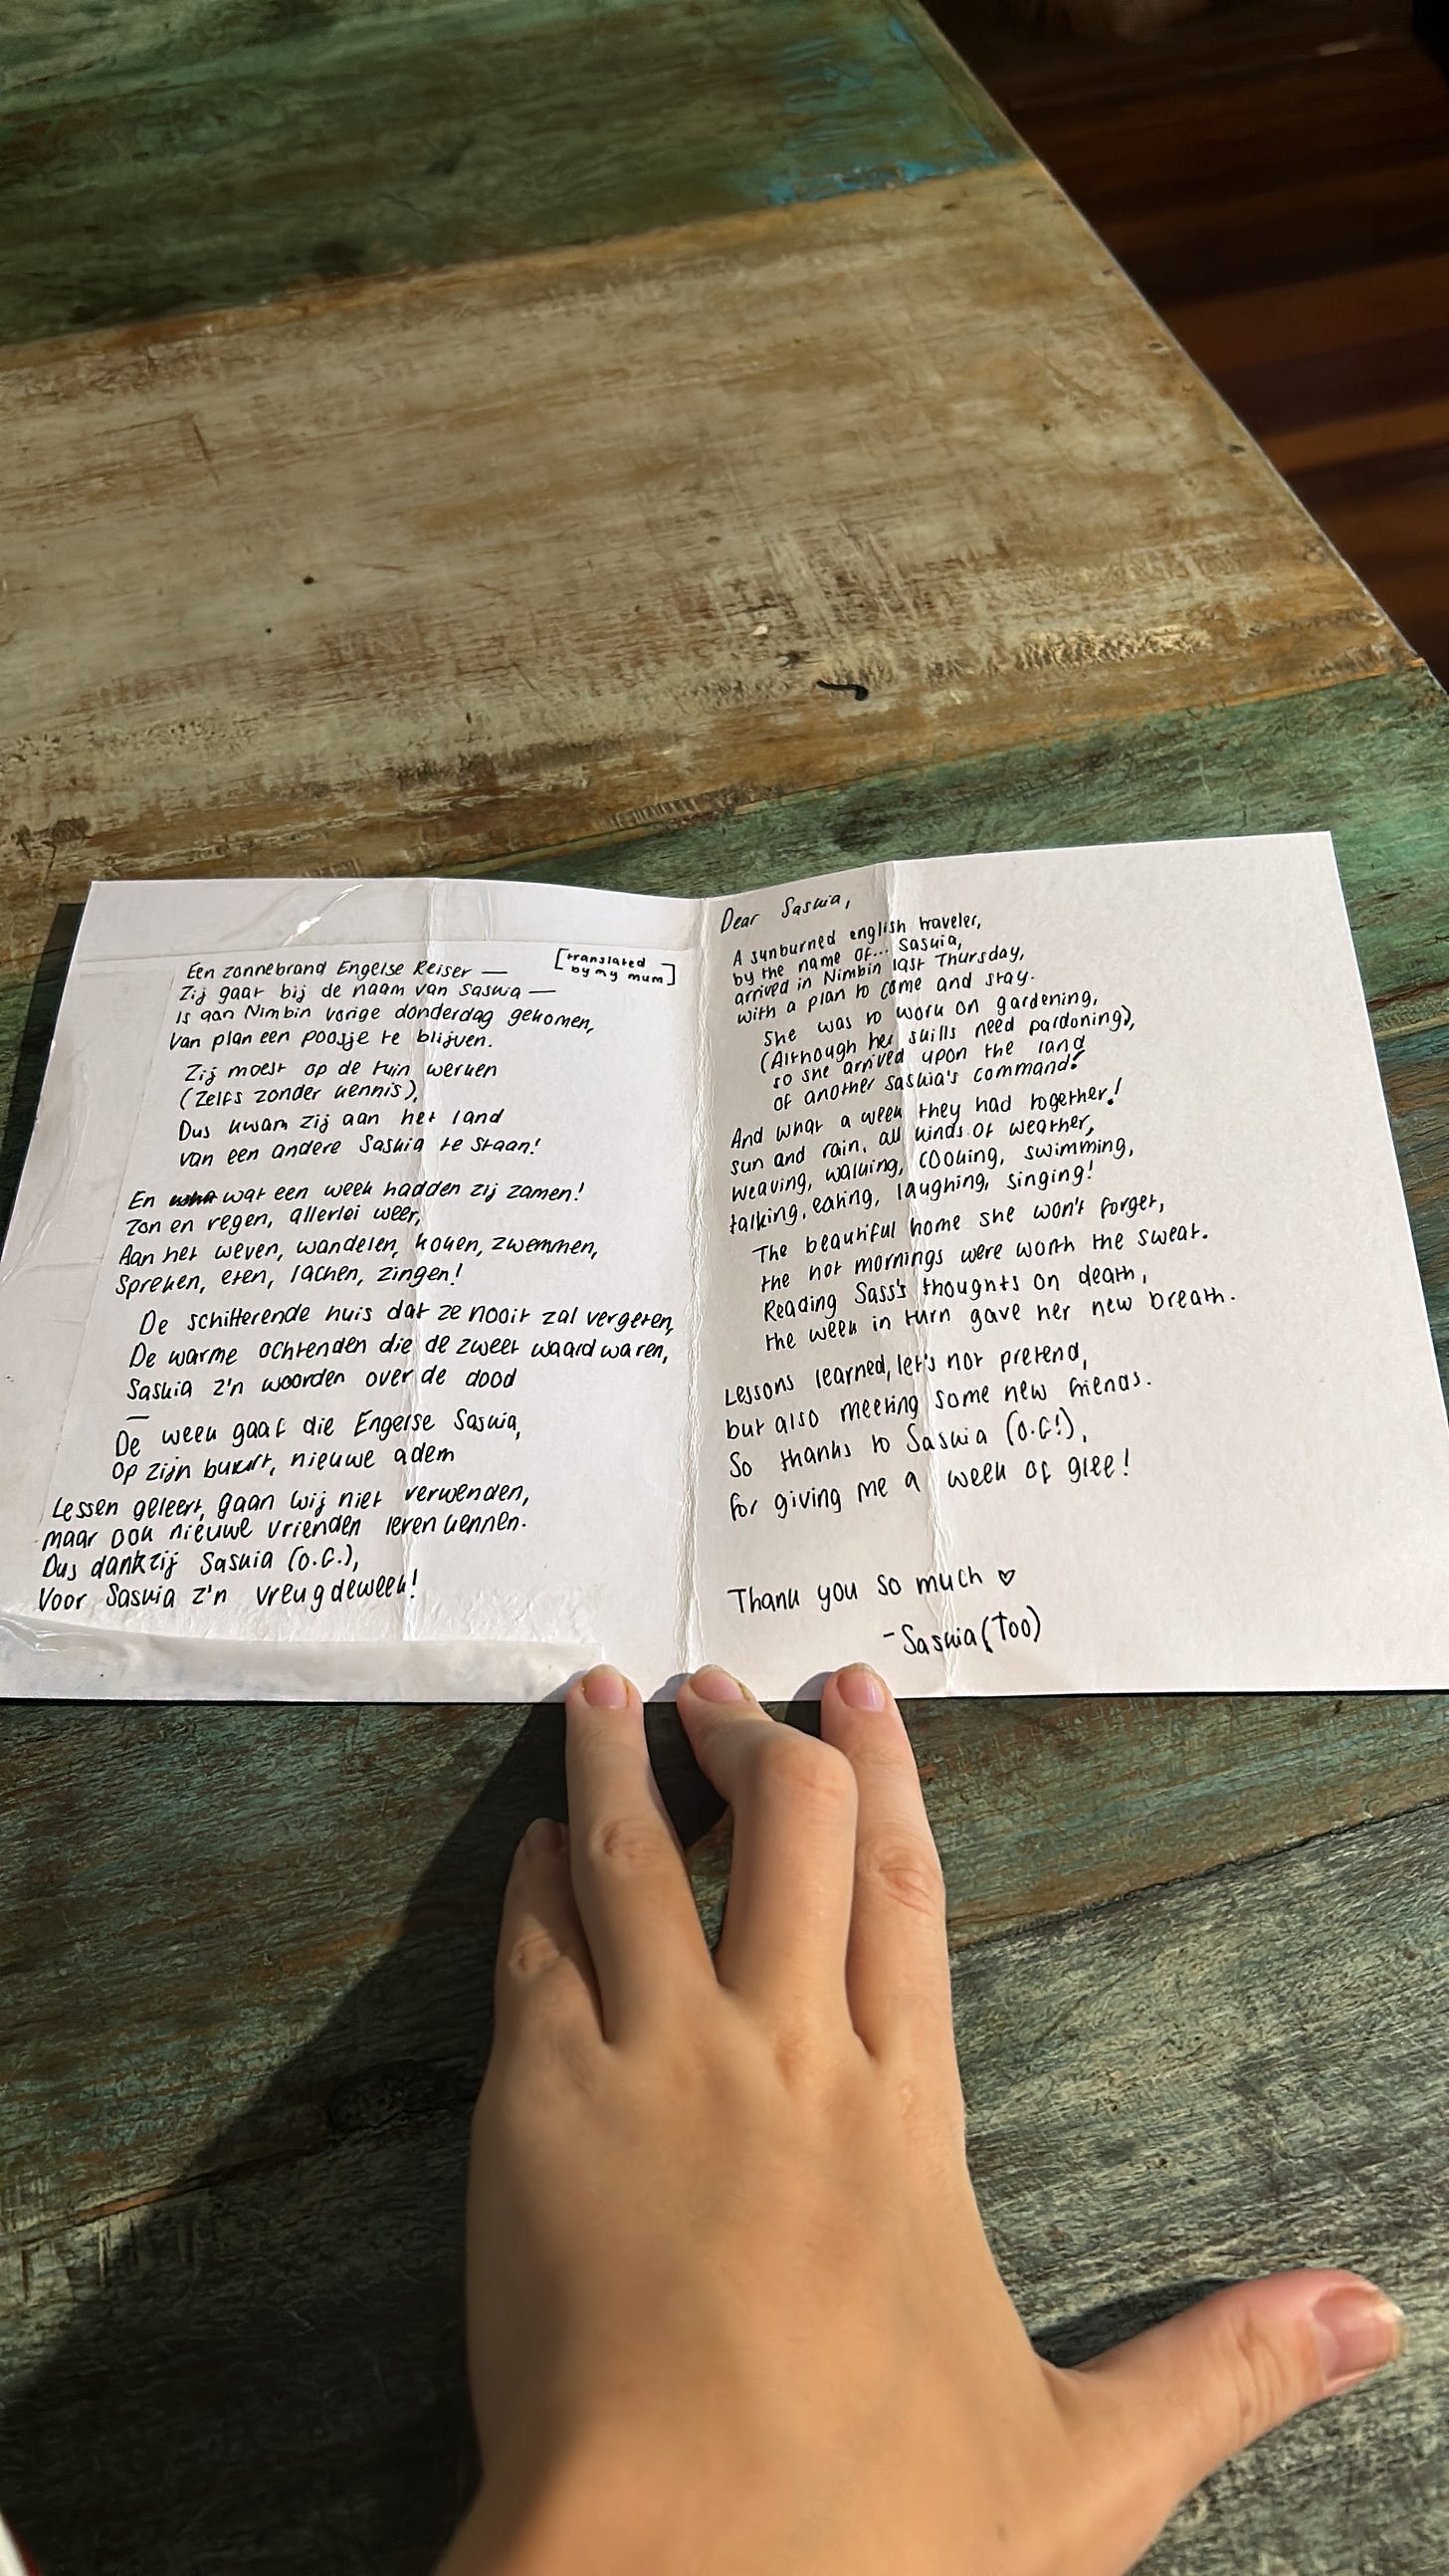 Een zonnebrand Engelse Reiser —
[translated
by my mum]
Zij gaat bij de naam van Saskia —
is aan Nimbin vorige donderdag gekomen,
Van plan een poosje te blijven.
Zij moest op de tuin werken
(Zelfs zonder kennis),
Dus kwam zij aan het land
van een andere Saskia te staan!
En wat een week hadden zij zamen!
Zon en regen, allerlei weer,
Aan het weven, wandelen, koken, zwemmen,
Spreken, eten, lachen, zingen!
De schitterende huis dat ze nooit zal vergeten,
De warme ochtenden die de zweet waard waren,
Saskia z'n woorden over de dood
—
De week gaaf die Engelse Saskia,
Op zijn buurt, nieuwe adem
Lessen geleert, gaan wij niet verwenden,
maar ook nieuwe vrienden leren kennen.
Dus dankzij Saskia (O.G.),
Voor Saskia z'n vreugdeweek!
Dear Saskia,
A sunburned english traveler,
by the name of... Saskia,
arrived in Nimbin last Thursday,
with a plan to come and stay.
She was to work on gardening,
(Although her skills need pardoning),
so she arrived upon the land
of another Saskia's command!
And what a week they had together!
sun and rain, all kinds of weather,
weaving, walking, cooking, swimming,
talking, eating, laughing, singing!
The beautiful home she won't forget,
the hot mornings were worth the sweat.
Reading Sass's thoughts on death,
the week in turn gave her new breath.
Lessons learned, let's not pretend,
but also meeting some new friends.
So thanks to Saskia (O.G!),
for giving me a week of glee!
Thank you so much ♡
-Saskia (Too)